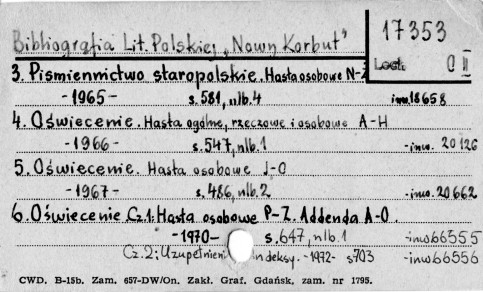 17353
Bibliografia Lit. Polskiej „Nowy Korbut"
Lect. C II
3. Piśmiennictwo staropolskie. Hasła osobowe N-Ż
-1965- s. 581, nlb. 4 inw. 18658
4. Oświecenie. Hasła ogólne, rzeczowe i osobowe A-H
-1966- s. 547, nlb. 1 -inw. 20126
5. Oświecenie. Hasła osobowe I-O
-1967- s. 486, nlb. 2 -inw. 20662
6. Oświecenie Cz. 1: Hasła osobowe P-Z. Addenda A-O.
-1970- s. 647, nlb. 1 -inw. 66555
Cz. 2: Uzupełnieni ndeksy. -1972- s703 -inw. 66556
CWD. B-15b. Zam. 657-DW/On. Zakł. Graf. Gdańsk, zam. nr 1795.